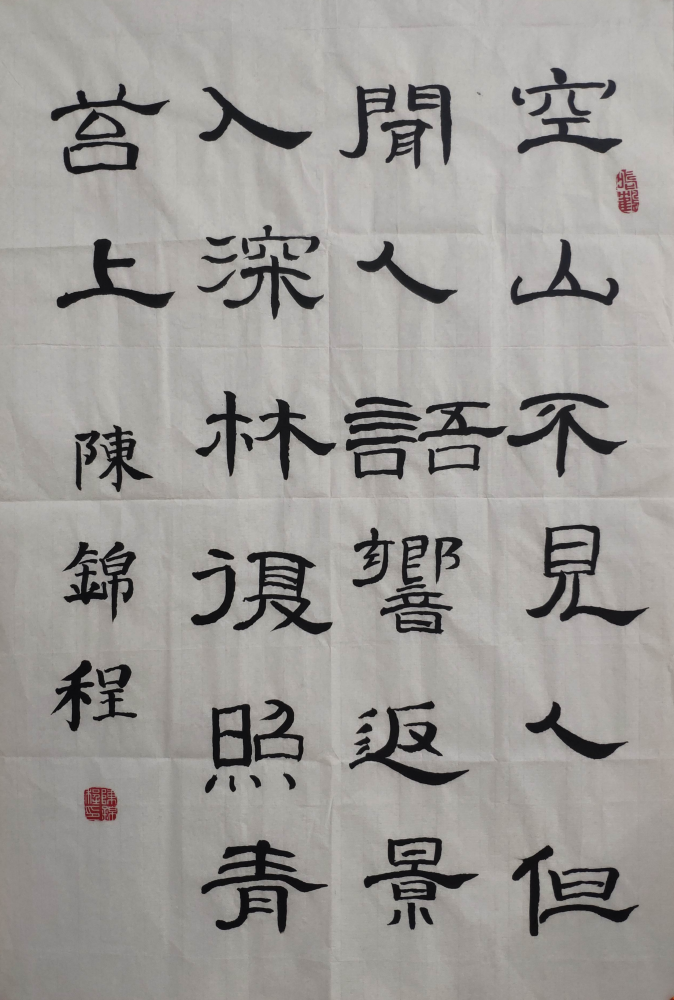 空山不見人但
聞人語響返景
入深林復照青
苔上
陳錦程